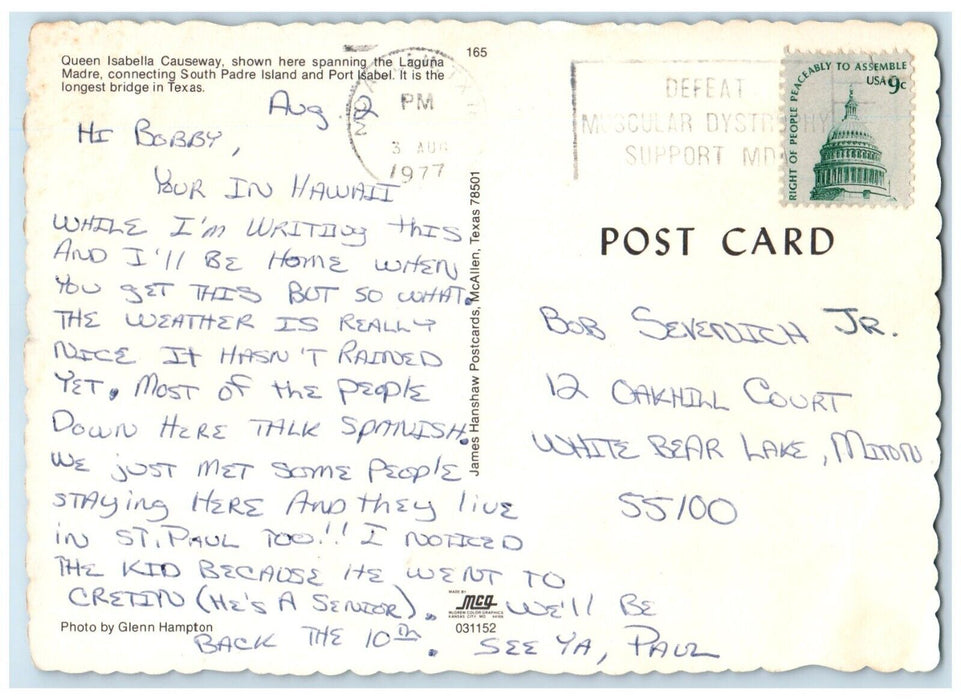 Queen Isabella Causeway, shown here spanning the Laguna
Madre, connecting South Padre Island and Port Isabel. It is the
longest bridge in Texas.
165
Aug. 2
HI BOBBY,
YOUR IN HAWAII
WHILE I'M WRITING THIS
AND I'LL BE HOME WHEN
YOU GET THIS BUT SO WHAT.
THE WEATHER IS REALLY
NICE IT HASN'T RAINED
YET. MOST OF the PEOPLE
DOWN HERE TALK SPANISH.
WE JUST MET SOME PEOPLE
STAYing HERE And they live
in ST. PAUL TOO!! I NOTICED
THE KID BECAUSE HE WENT TO
CRETIN (HE'S A SENIOR). WE'LL BE
BACK THE 10th. SEE YA, PAUL
Photo by Glenn Hampton
MADE BY
mcg
McGREW COLOR GRAPHICS
KANSAS CITY, MO
031152
James Hanshaw Postcards, McAllen, Texas 78501
PM
3 AUG
1977
DEFEAT
MUSCULAR DYSTROPHY
SUPPORT MD
RIGHT OF PEOPLE PEACEABLY TO ASSEMBLE
USA 9c
POST CARD
BOB SEVENICH JR.
12 OAKHILL COURT
WHITE BEAR LAKE, MINN
55100